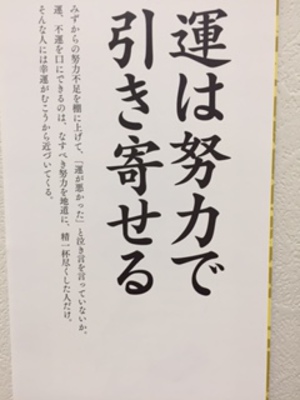 運は努力で
引き寄せる
みずからの努力不足を棚に上げて、「運が悪かった」と泣き言を言っていないか。
運、不運を口にできるのは、なすべき努力を地道に、精一杯尽くした人だけ。
そんな人には幸運がむこうから近づいてくる。